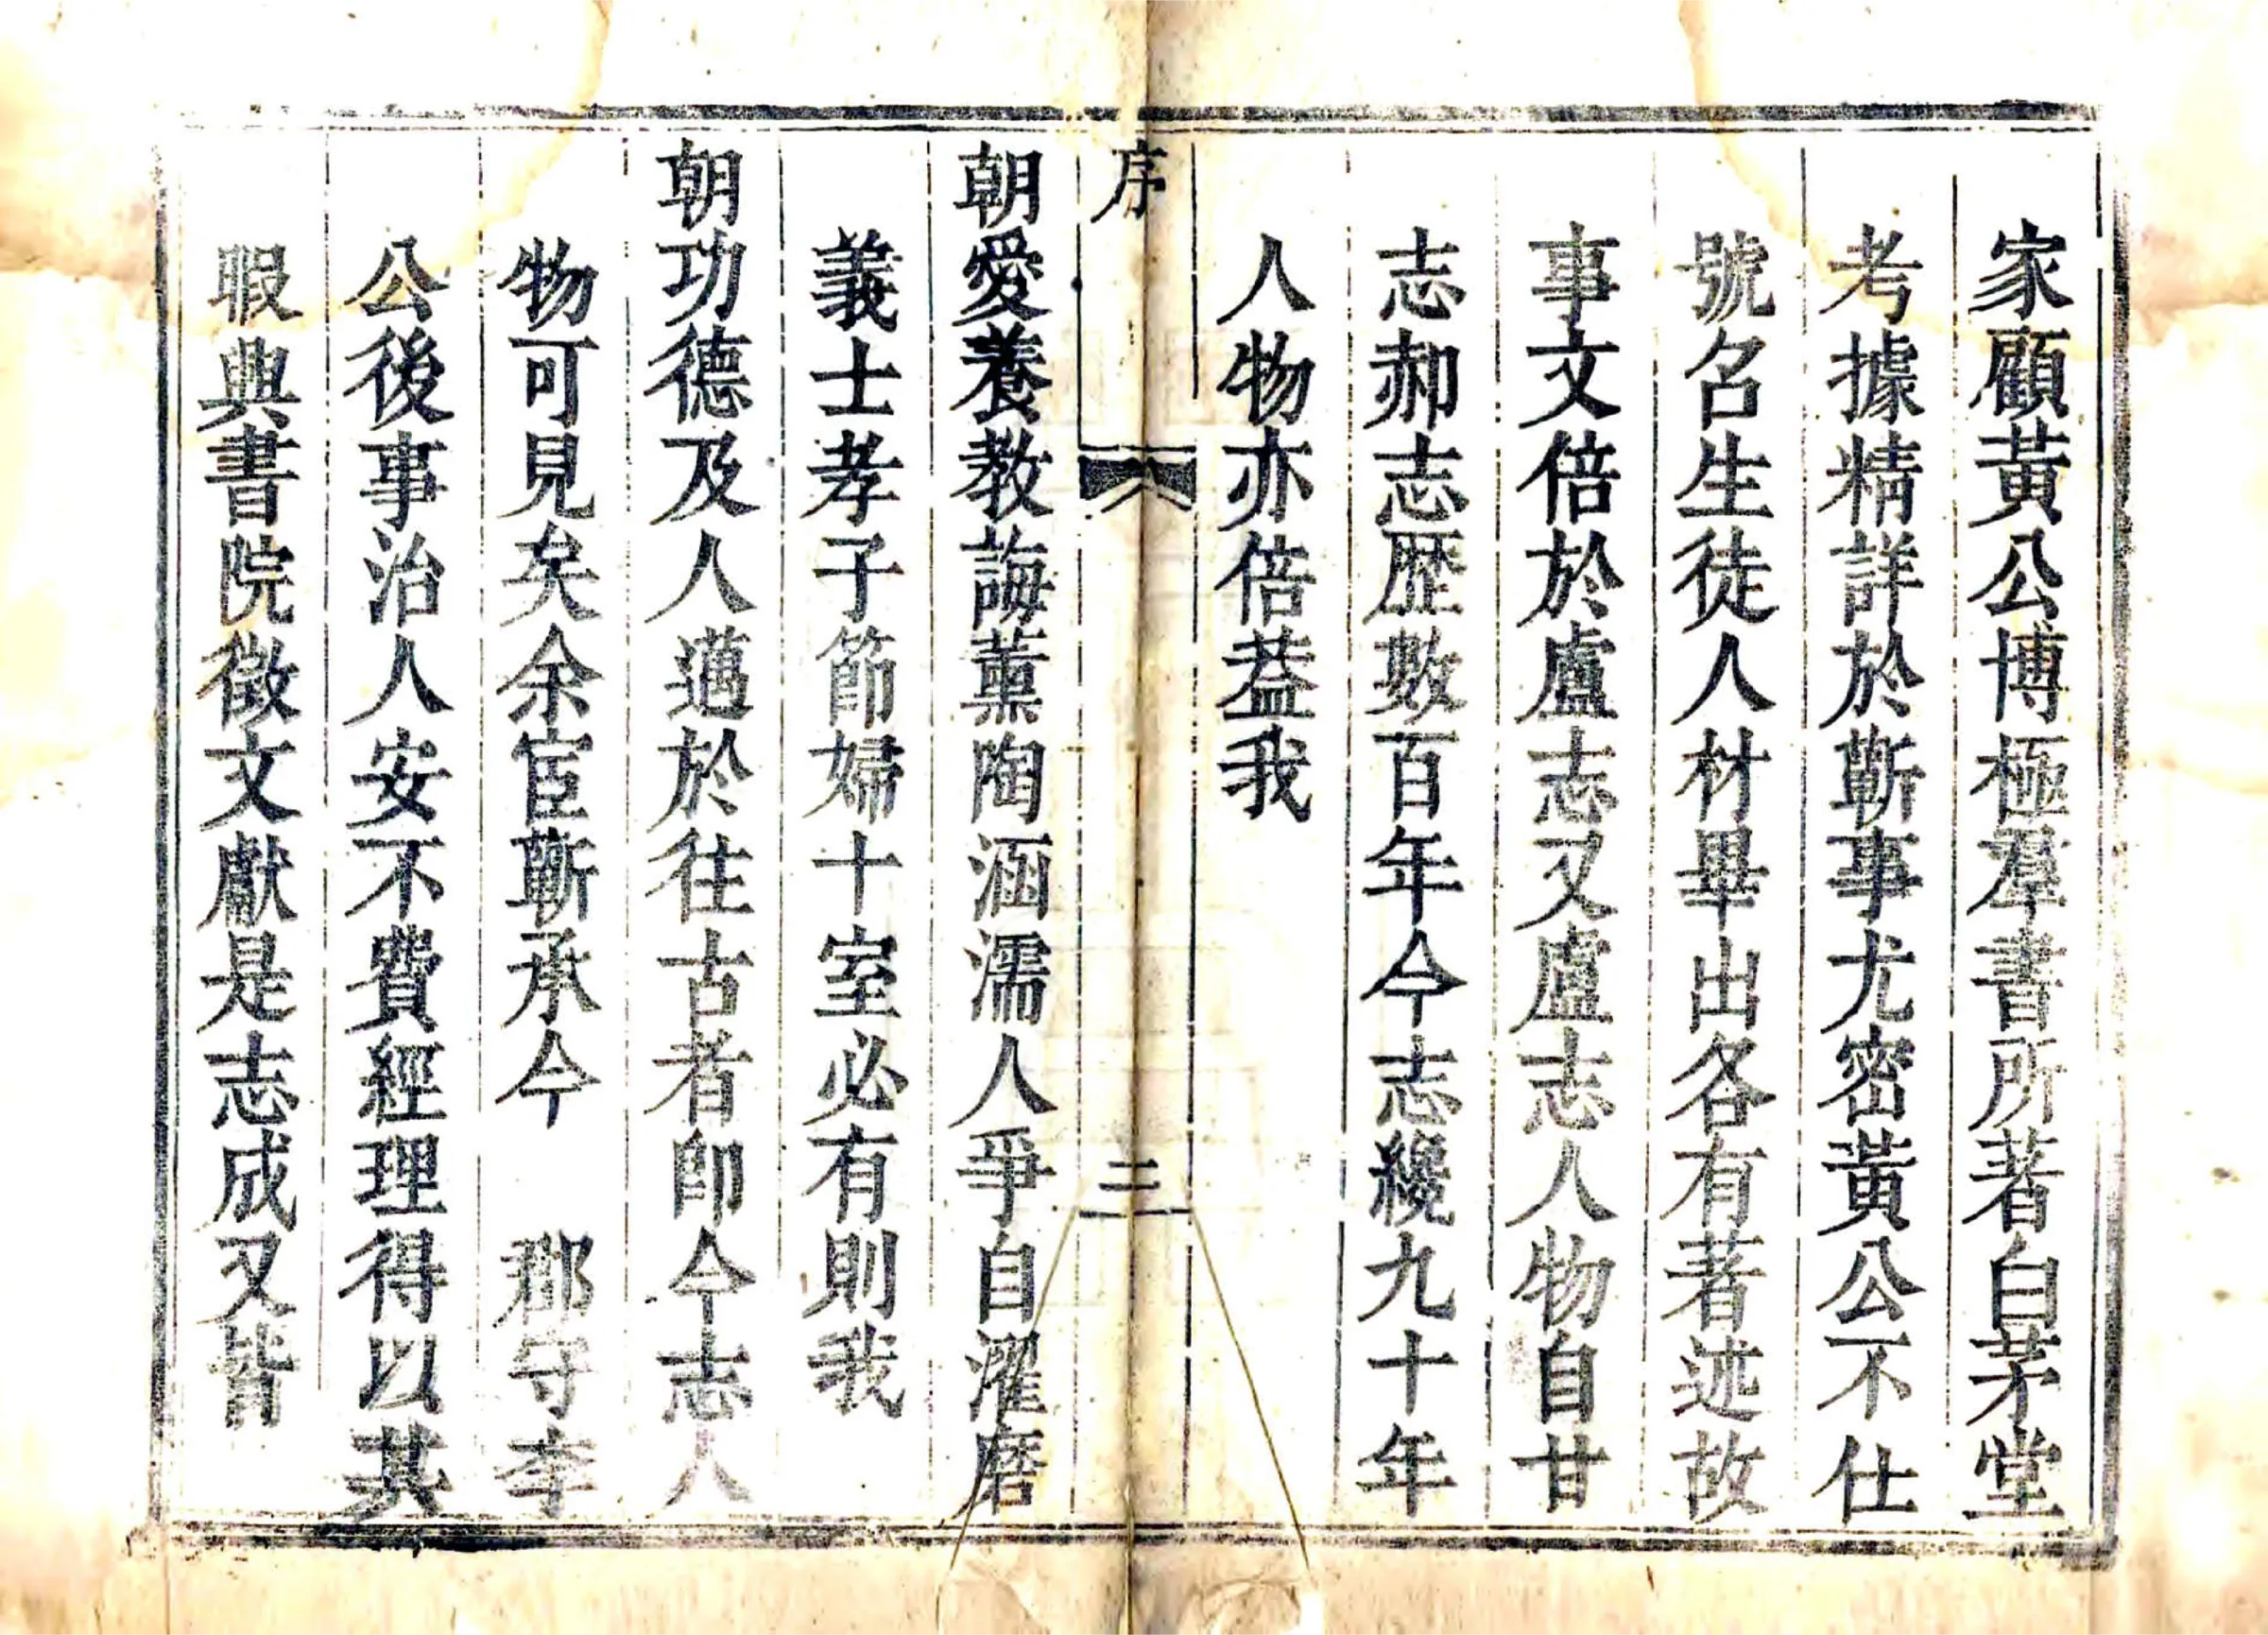 家顧黃公博極羣書所著白茅堂
考據精詳於蘄事尤密黃公不仕
號名生徒人材畢出各有著述故
事文倍於盧志又盧志人物自甘
志郝志歷數百年今志纔九十年
人物亦倍葢我
序
三
朝愛養教誨薰陶涵濡人爭自濯磨
義士孝子節婦十室必有則我
朝功德及人邁於往古者即今志人
物可見矣余宦蘄承今 郡守李
公後事治人安不費經理得以其
暇興書院徵文獻是志成又皆